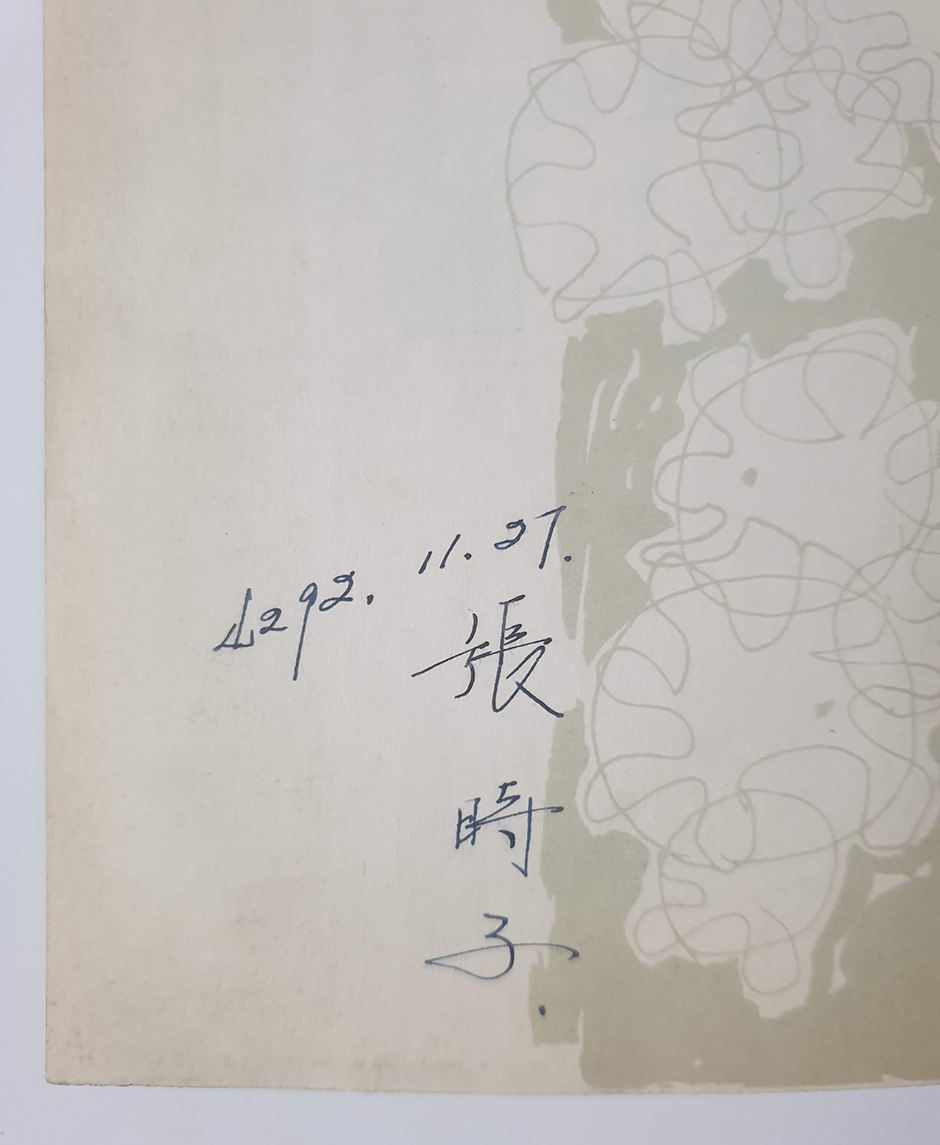 4292. 11. 27.
張
時
子.